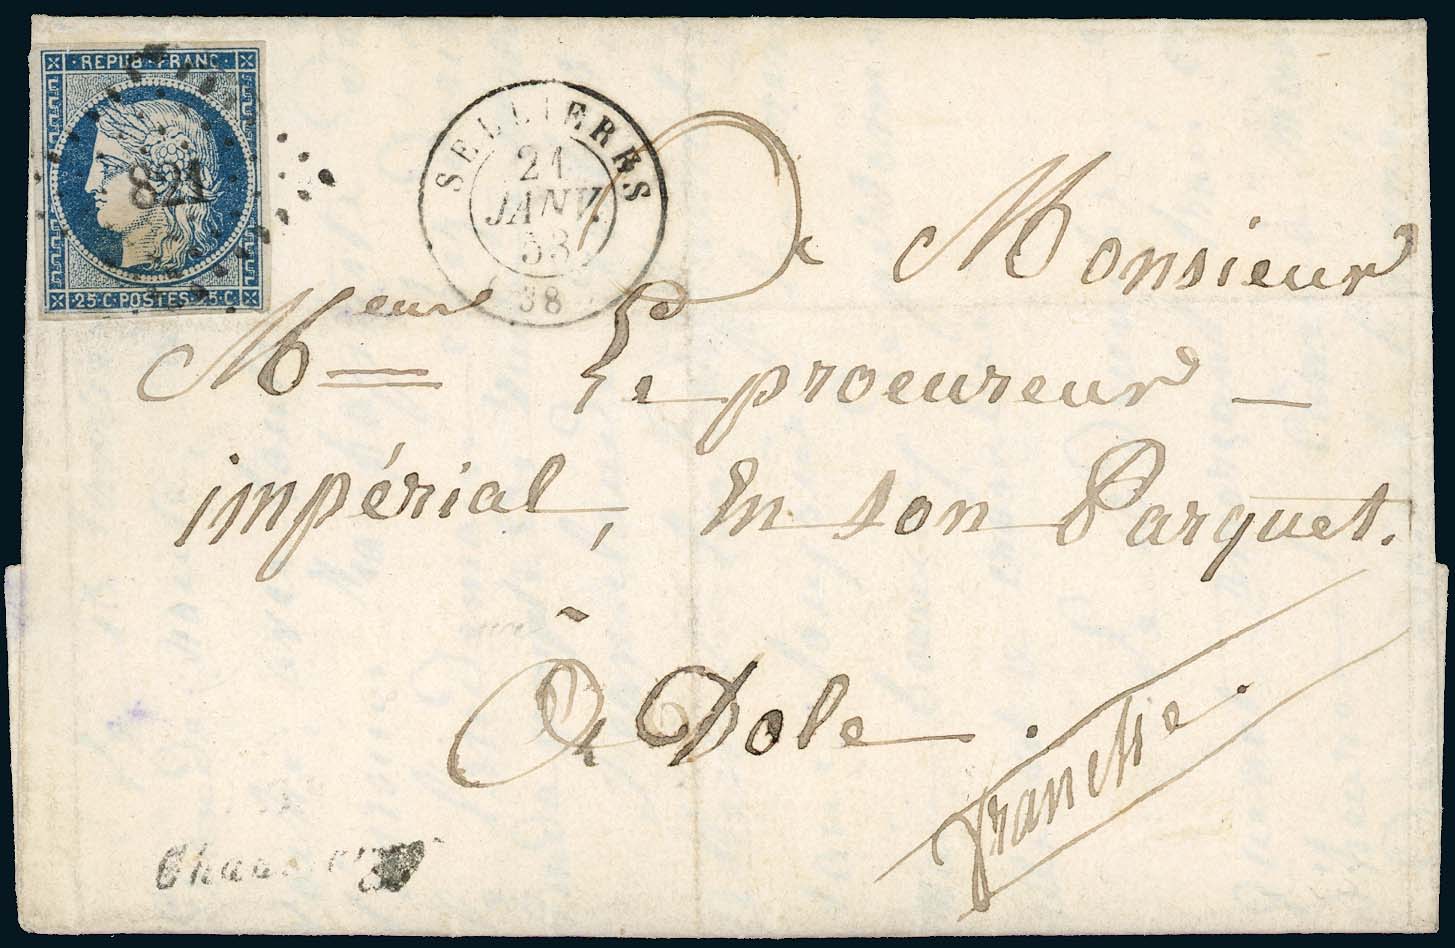 REPUB FRANC
821
25 C POSTES 25 C
SELLIERES
21
JANV.
53
(38)
a Monsieur
Meur Le procureur
impérial, En son Parquet.
à Dole.
franche.